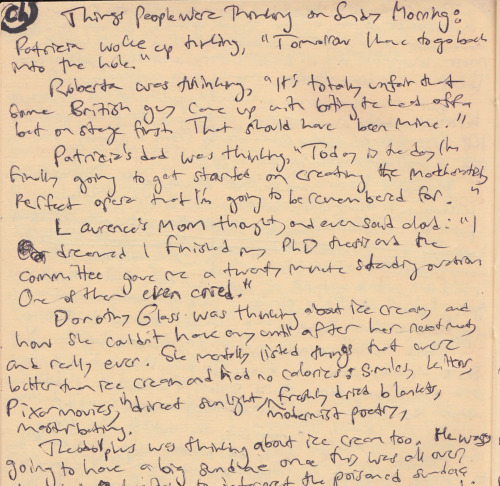 Ch 
Things People Were Thinking on Sunday Morning:
Patricia woke up thinking, "Tomorrow I have to go back
into the hole."
Roberta was thinking, "It's totally unfair that
some British guy came up with biting the head off a
bat on stage first. That should have been mine."
Patricia's dad was thinking, "Today is the day I'm
finally going to get started on creating the mathematically
perfect opera that I'm going to be remembered for."
Laurence's Mom thought, and even said aloud: "I
dreamed I finished my PhD thesis and the
committee gave me a twenty minute standing ovation
One of them even cried."
Dorothy Glass was thinking about ice cream, and
how she couldn't have any until after her next
and really ever. She mentally listed things that were
better than ice cream and had no calories: smiles, kittens,
Pixar movies, direct sunlight, freshly dried blankets,
modernist poetry,
masturbating.
Theodolphus was thinking about ice cream too. He was
going to have a big sundae once this was all over
to the poisoned sundae